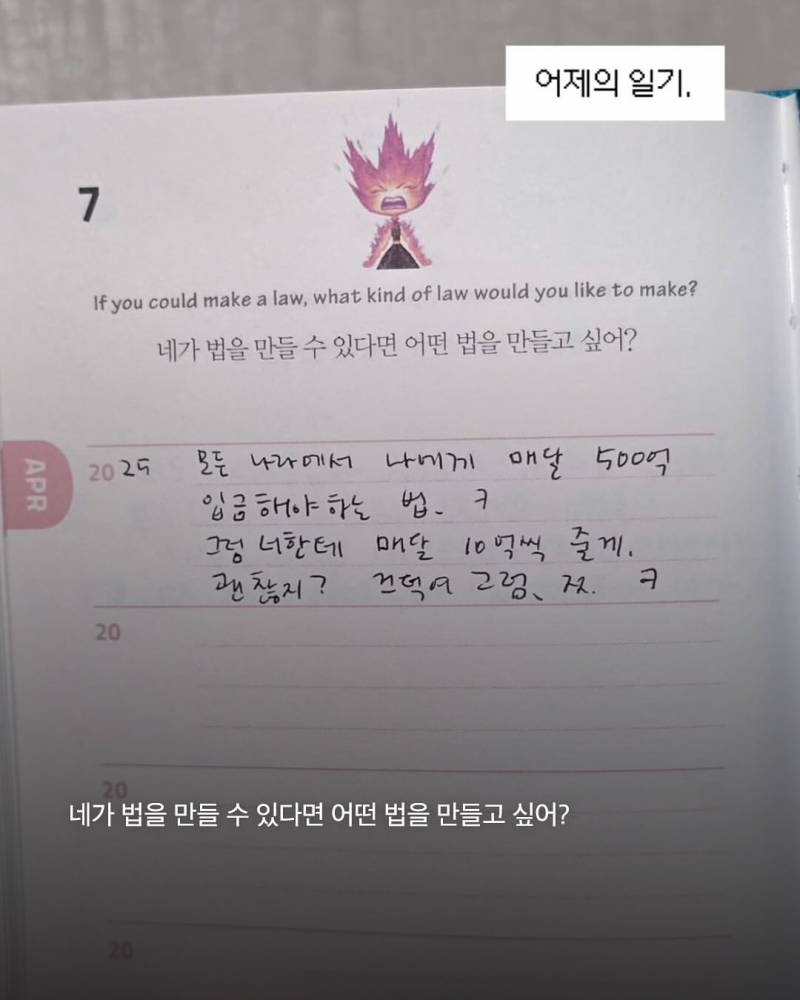 어제의 일기.
7
If you could make a law, what kind of law would you like to make?
네가 법을 만들 수 있다면 어떤 법을 만들고 싶어?
APR
2025 모든 나라에서 나에게 매달 500억
입금해야하는 법. ㅋ
그럼 너한테 매달 10억씩 줄게.
괜찮지? 끄덕여 그럼, 쪼. ㅋ
20
20
네가 법을 만들 수 있다면 어떤 법을 만들고 싶어?
20